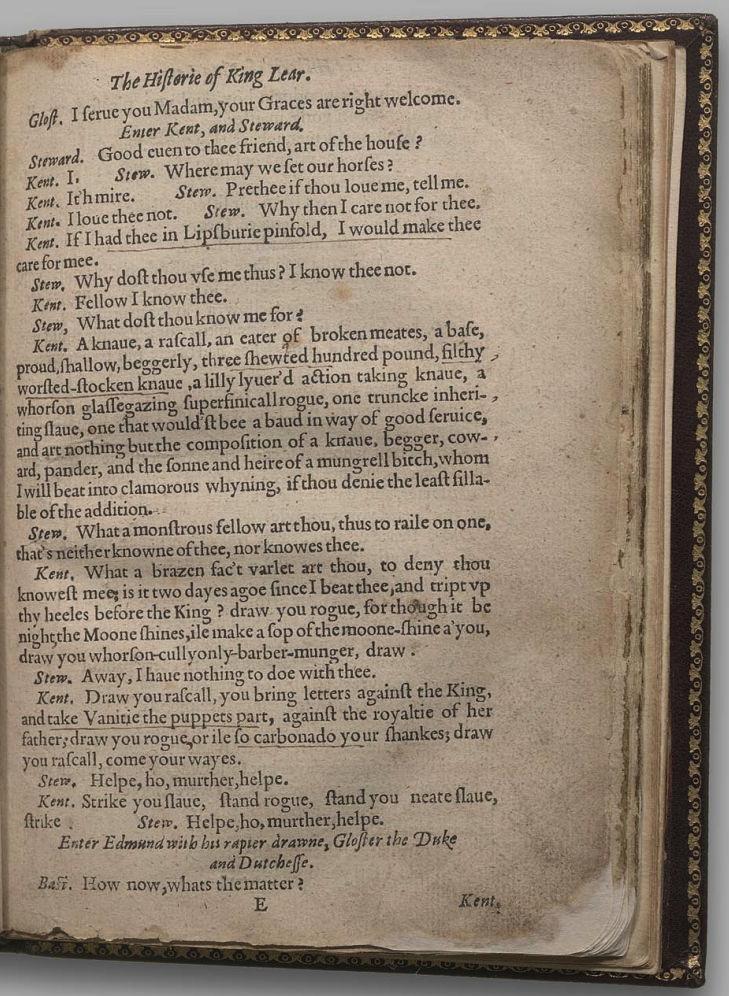 The Hiſtorie of King Lear.
Gloſt. I ſerue you Madam, your Graces are right welcome.
Enter Kent, and Steward.
Steward. Good euen to thee friend, art of the houſe ?
Kent. I. Stew. Where may we ſet our horſes ?
Kent. It'h mire. Stew. Prethee if thou loue me, tell me.
Kent. I loue thee not. Stew. Why then I care not for thee.
Kent. If I had thee in Lipſburie pinfold, I would make thee
care for mee.
Stew. Why doſt thou vſe me thus ? I know thee not.
Kent. Fellow I know thee.
Stew, What doſt thou know me for ?
Kent. A knaue, a raſcall, an eater of broken meates, a baſe,
proud, ſhallow, beggerly, three ſhewted hundred pound, filthy
worſted-ſtocken knaue, a lilly lyuer'd action taking knaue, a
whorſon glaſſegazing ſuperfinicall rogue, one truncke inheri-
ting ſlaue, one that would'ſt bee a baud in way of good ſeruice,
and art nothing but the compoſition of a knaue, begger, cow-
ard, pander, and the ſonne and heire of a mungrell bitch, whom
I will beat into clamorous whyning, if thou denie the leaſt ſilla-
ble of the addition.
Stew. What a monſtrous fellow art thou, thus to raile on one,
that's neither knowne of thee, nor knowes thee.
Kent. What a brazen fac't varlet art thou, to deny thou
knoweſt mee; is it two dayes agoe ſince I beat thee, and tript vp
thy heeles before the King ? draw you rogue, for though it be
night, the Moone ſhines, ile make a ſop of the moone-ſhine a'you,
draw you whorſon-cullyonly-barber-munger, draw .
Stew. Away, I haue nothing to doe with thee.
Kent. Draw you raſcall, you bring letters againſt the King,
and take Vanitie the puppets part, againſt the royaltie of her
father; draw you rogue, or ile ſo carbonado your ſhankes; draw
you raſcall, come your wayes.
Stew. Helpe, ho, murther, helpe.
Kent. Strike you ſlaue, ſtand rogue, ſtand you neate ſlaue,
ſtrike . Stew. Helpe, ho, murther, helpe.
Enter Edmund with his rapier drawne, Gloſter the Duke
and Dutcheſſe.
Baſt. How now, whats the matter ?
E Kent.